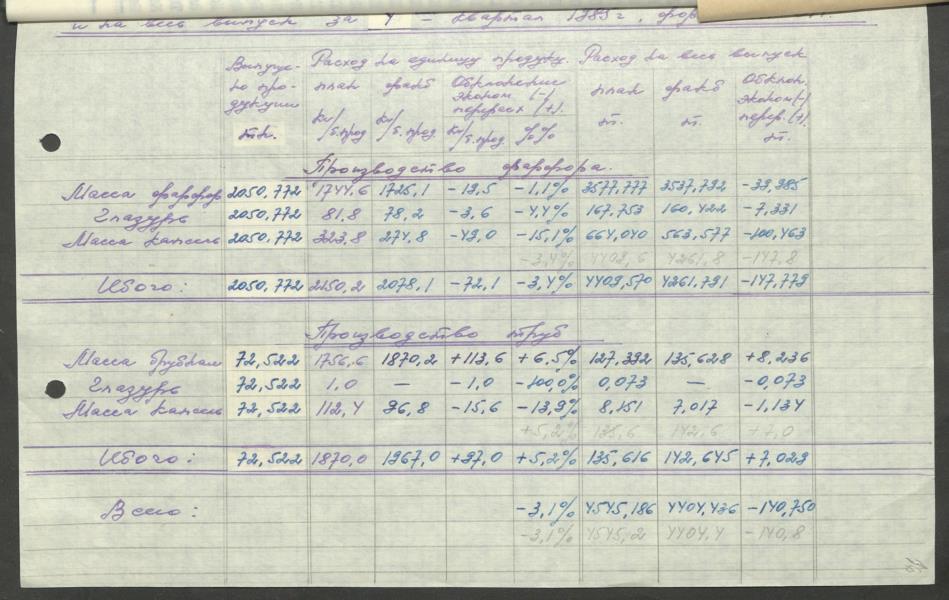 и на весь выпуск за 4 – квартал 1983 г,
Выпуще- Расход на единицу продукц. Расход на весь выпуск
но про- план факт Отклонение план факт Отклон.
дукции эконом. (-) эконом (-)
перерасх (+). перер. (+)
тн. кг/т.прод кг/т.прод кг/т.прод %% т. т. т.
Производство фарфора.
Масса фарфор 2050,772 1744,6 1725,1 –19,5 –1,1% 3577,777 3537,792 –39,985
Глазурь 2050,772 81,8 78,2 –3,6 –4,4% 167,753 160,422 –7,331
Масса капсель 2050,772 323,8 274,8 –49,0 –15,1% 664,040 563,577 –100,463
–3,4% 4409,6 4261,8 –147,8
Итого: 2050,772 2150,2 2078,1 –72,1 –3,4% 4409,570 4261,791 –147,779
Производство труб
Масса 72,522 1756,6 1870,2 +113,6 +6,5% 127,392 135,628 +8,236
Глазурь 72,522 1,0 — –1,0 –100,0% 0,073 — –0,073
Масса капсель 72,522 112,4 96,8 –15,6 –13,9% 8,151 7,017 –1,134
+5,2% 135,6 142,6 +7,0
Итого: 72,522 1870,0 1967,0 +97,0 +5,2% 135,616 142,645 +7,029
Всего: –3,1% 4545,186 4404,436 –140,750
–3,1% 4545,2 4404,4 –140,8